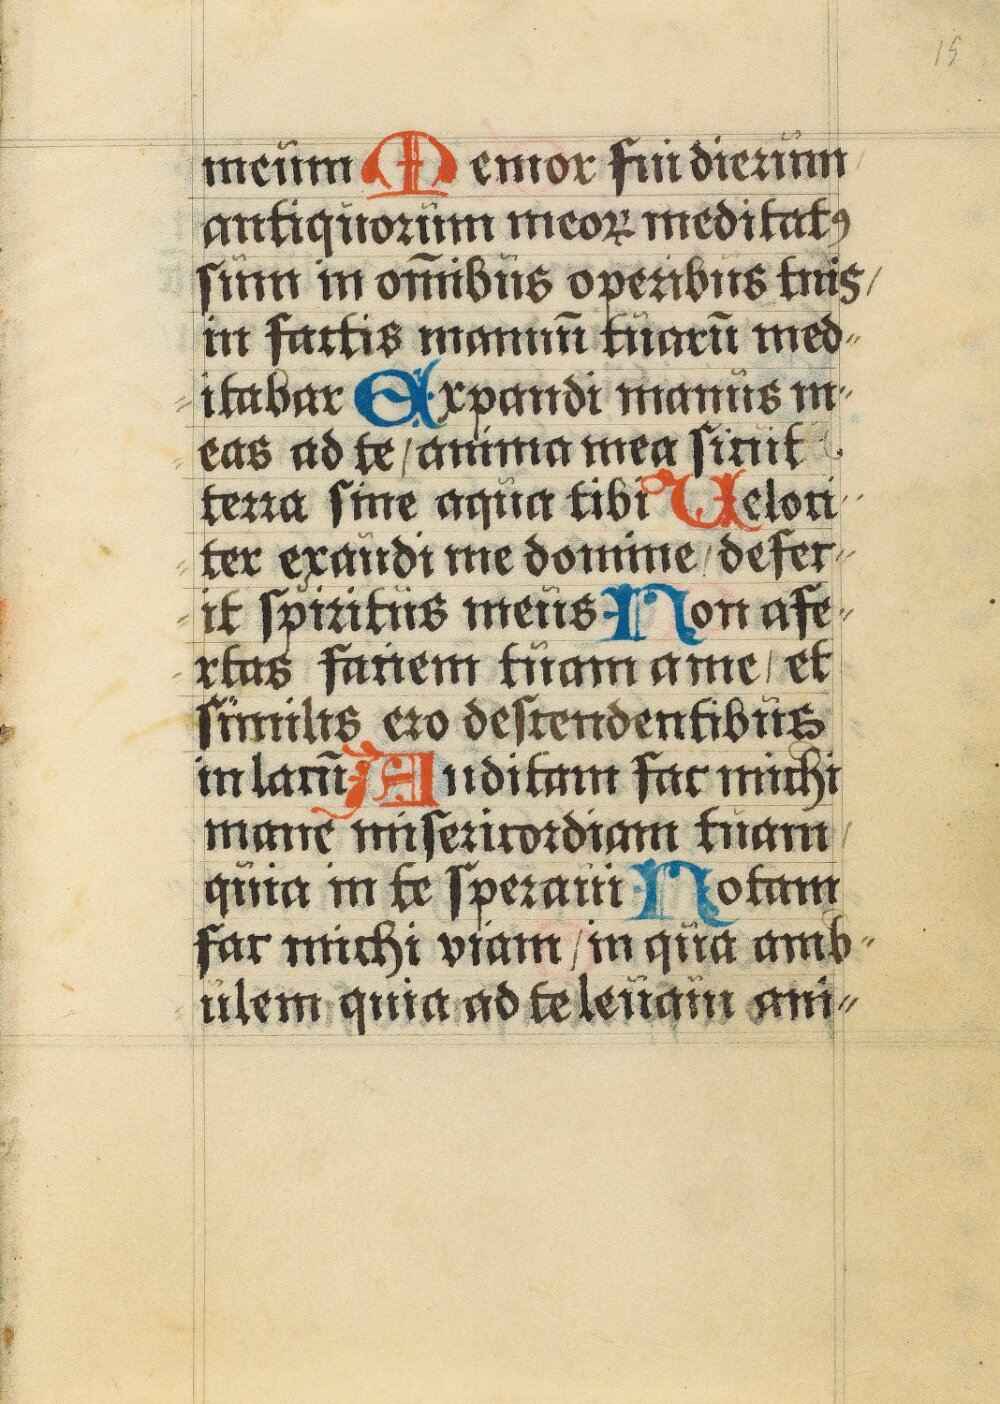 15
meum Memor fui dierum
antiquorum meoꝝ meditatꝰ
sum in om̄ibus operibus tuis/
in factis manuū tuarū med〃
〃itabar Expandi manus m〃
〃eas ad te/anima mea sicut
terra sine aqua tibi Veloci〃
〃ter exaudi me domine/defec〃
〃it spiritus meus Non afe〃
〃rtas faciem tuam a me/et
similis ero descendentibus
in lacū Auditam fac michi
mane misericordiam tuam/
quia in te speraui Notam
fac michi viam/in qua amb〃
ulem quia ad te leuaui ani〃